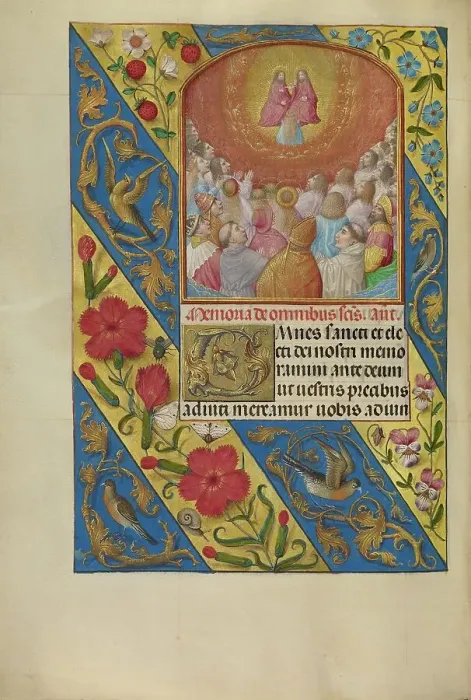 Memoria de omnibus scis. Ant.
Omnes sancti et ele
cti dei nostri memo
ramini ante deum
ut vestris precibus
adiuti mereamur vobis adiun